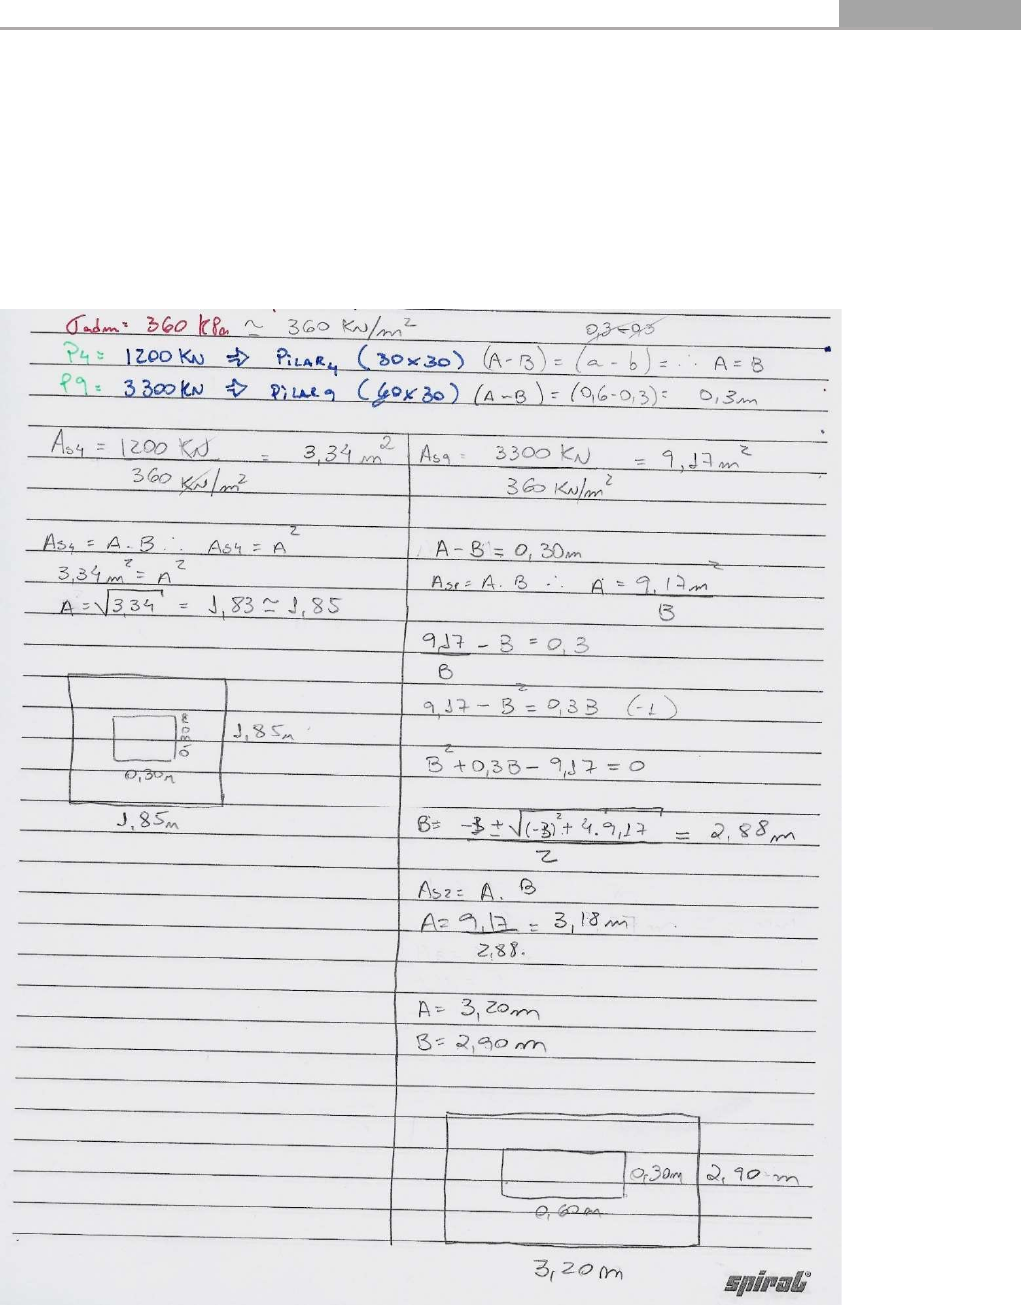 σadm = 360 kPa ≃ 360 KN/m²
0,3-0,3
P4 = 1200 KN ⇒ PILAR4 (30x30) (A-B) = (a-b) = ∴ A=B
P9 = 3300 KN ⇒ PILAR 9 (60x30) (A-B) = (0,6-0,3) = 0,3m
As4 = 1200 KN = 3,34 m²
360 KN/m²
As4 = A.B ∴ As4 = A²
3,34 m² = A²
A = √3,34 = 1,83 ≃ 1,85
0,30m
1,85m
0,30m
1,85m
As9 = 3300 KN = 9,17m²
360 KN/m²
A-B = 0,30m
As1 = A.B ∴ A = 9,17m²
B
9,17 - B = 0,3
B
9,17 - B² = 0,3B (-1)
B² + 0,3B - 9,17 = 0
B = -3 ± √(-3)² + 4.9,17 = 2,88m
2
As2 = A.B
A = 9,17 = 3,18m
2,88.
A = 3,20m
B = 2,90m
0,30m 2,90m
0,60m
3,20m
spiral®